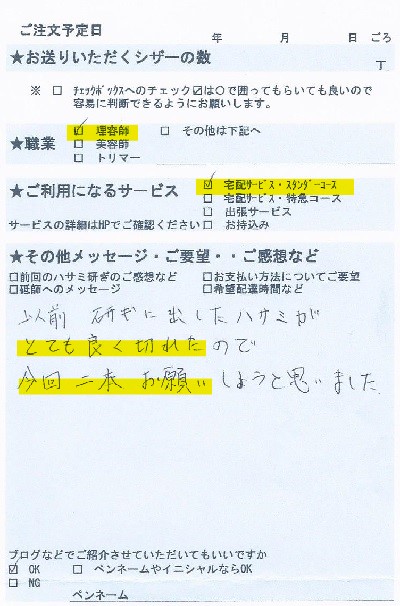 ご注文予定日
年 月 日 ごろ
★お送りいただくシザーの数
丁
※ □ チェックボックスへのチェック☑は○で囲ってもらいても良いので
容易に判断できるようにお願いします。
★職業
☑ 理容師 □ その他は下記へ
□ 美容師
□ トリマー
★ご利用になるサービス
☑ 宅配サービス・スタンダーコース
□ 宅配サービス・特急コース
□ 出張サービス
サービスの詳細はHPでご確認ください □ お持込み
★その他メッセージ・ご要望・・ご感想など
□前回のハサミ研ぎのご感想など □お支払い方法についてご要望
□砥師へのメッセージ □希望配達時間など
以前 研ぎに出したハサミが
とても良く切れたので
今回 二本 お願いしようと思いました
ブログなどでご紹介させていただいてもいいですか
☑ OK □ ペンネームやイニシャルならOK
□ NG
ペンネーム